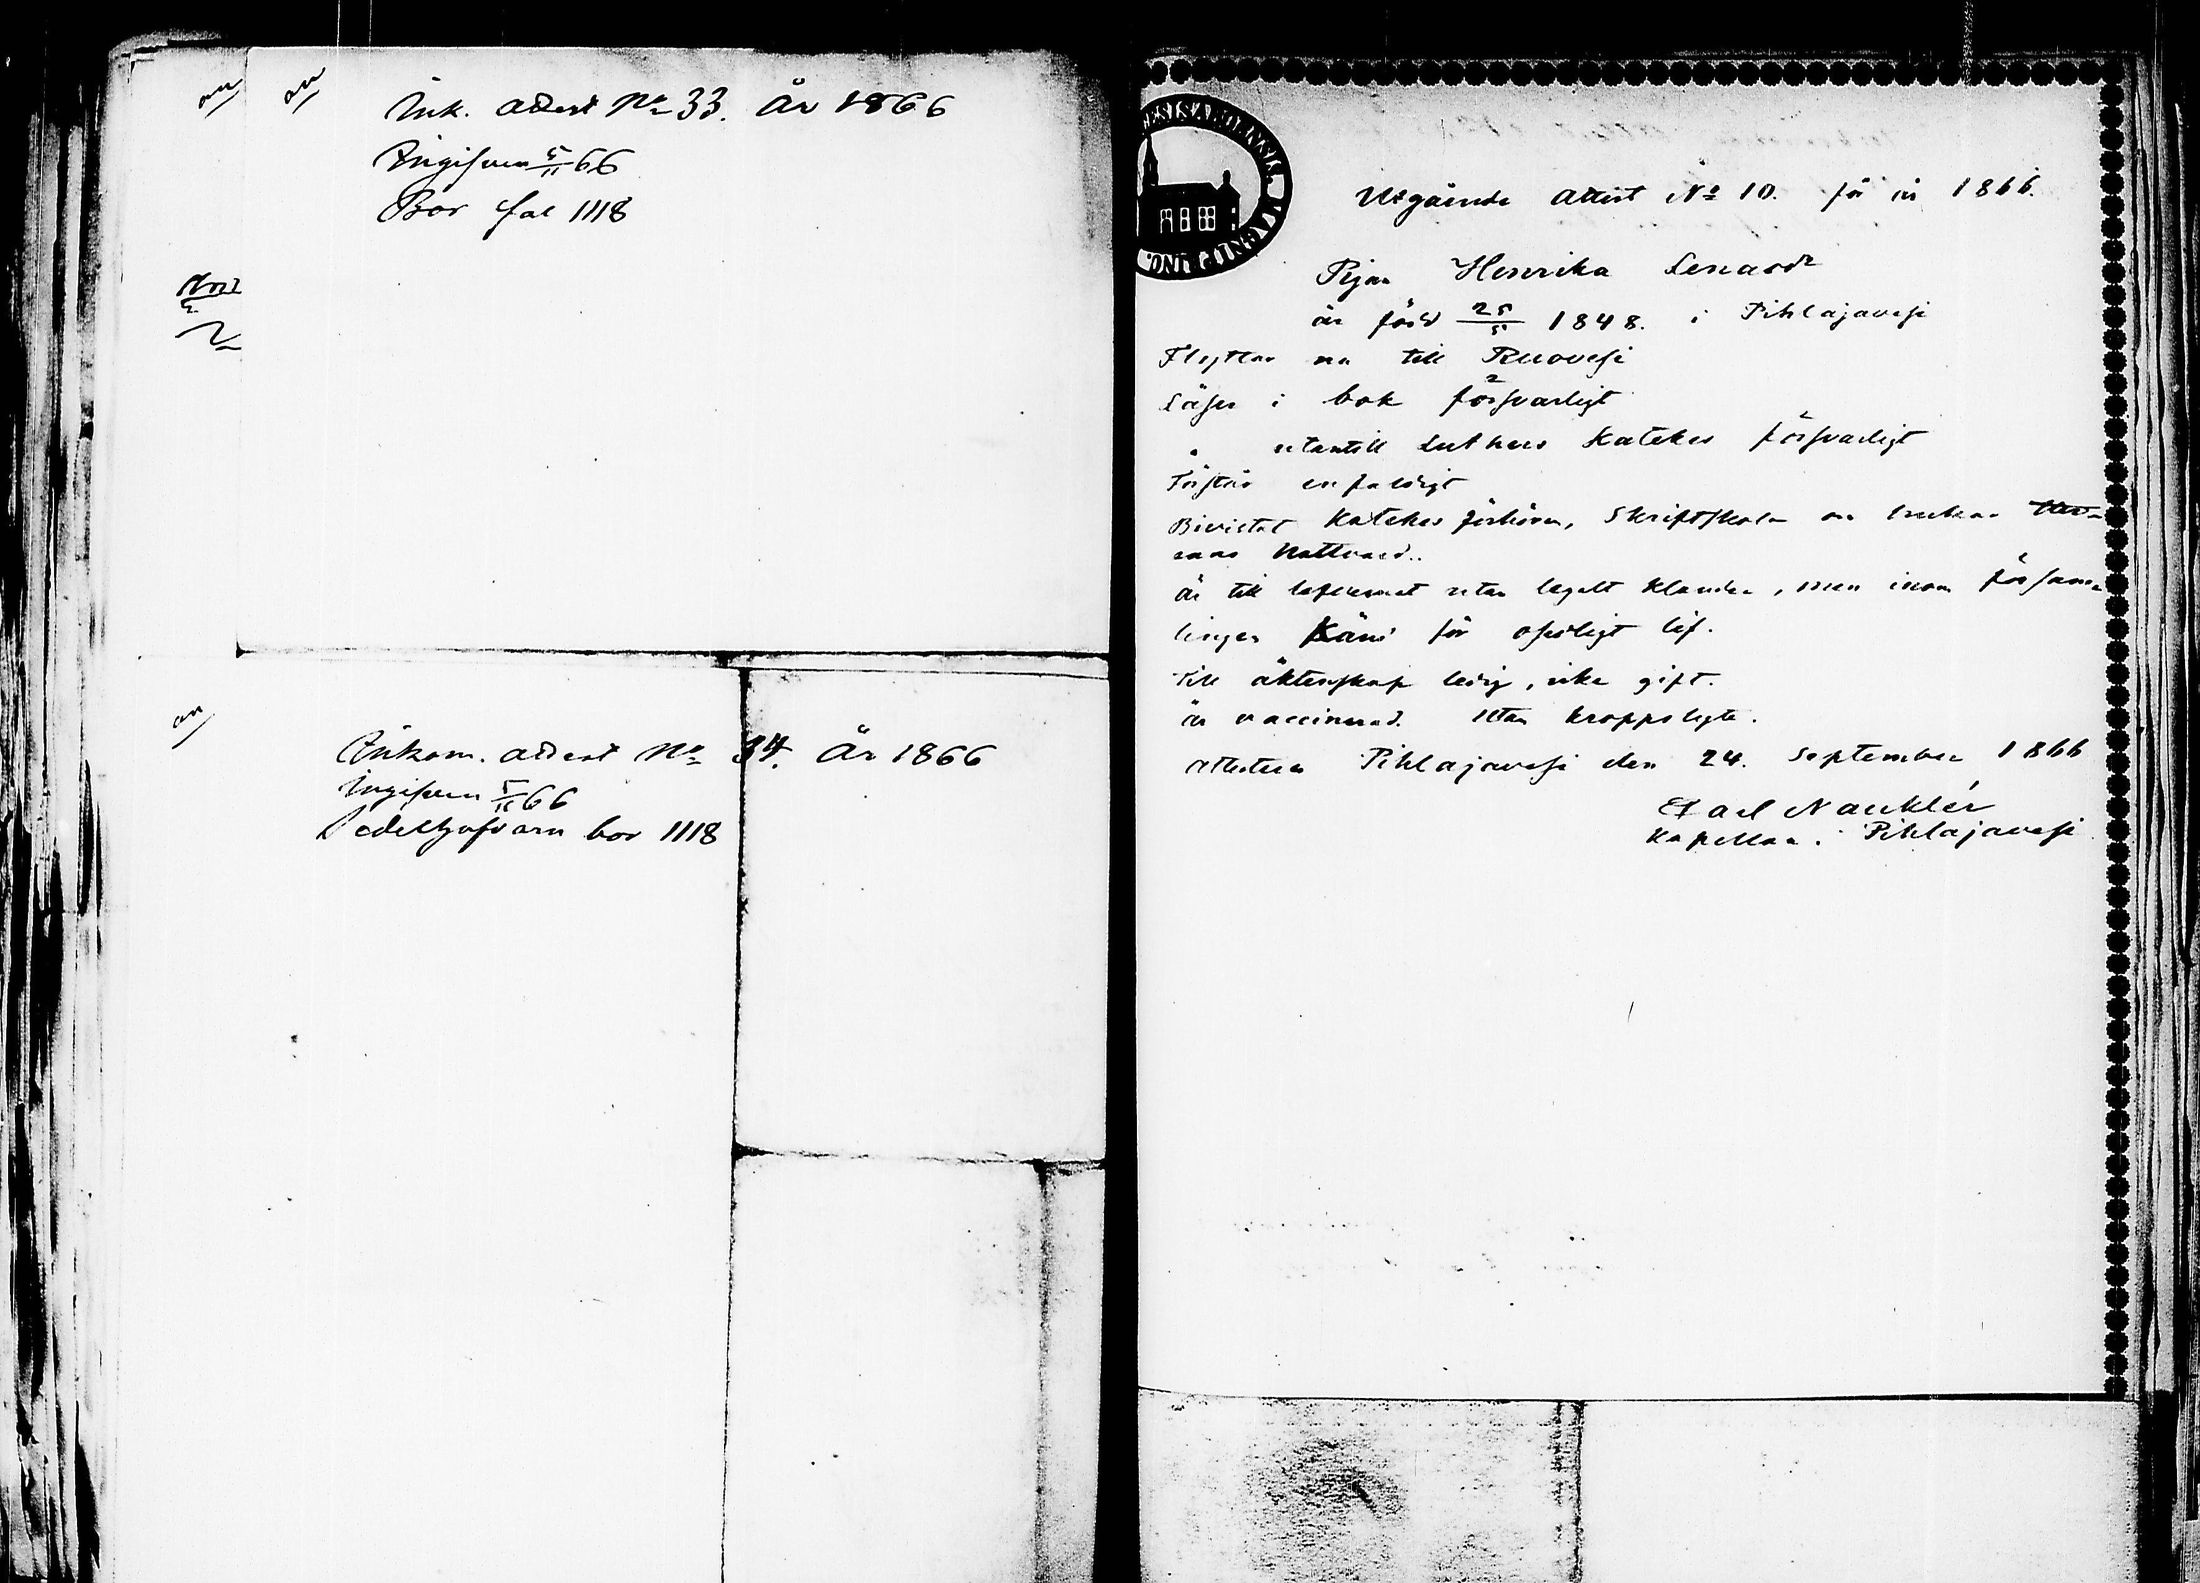 an an
Ink. attest No 33. År 1866
Ingifven 5/11 66
Bor fol 1118
an
Inkom. attest No 34. År 1866
Ingifven 5/11 66
bor 1118
Utgående Attest No 10. för år 1866.
Pigan Henrika Lenardr
är född 25/5 1848. i Pihlajavesi
Flyttar nu till Ruovesi
Läser i bok försvarligt
" utantill Luthers Kateches försvarligt
Förstår enfaldigt
Bivistat Kateches förhören, Skriftskola
Nattvard..
är till lefvernet utan lagelt klander, men inom försam-
lingen känd för osedligt lif.
Till äktenskap ledig, icke gift.
är vaccinerad. Utan kroppslyte.
Attesterar Pihlajavesi den 24. September 1866
Carl Nauklér
Kapellan i Pihlajavesi